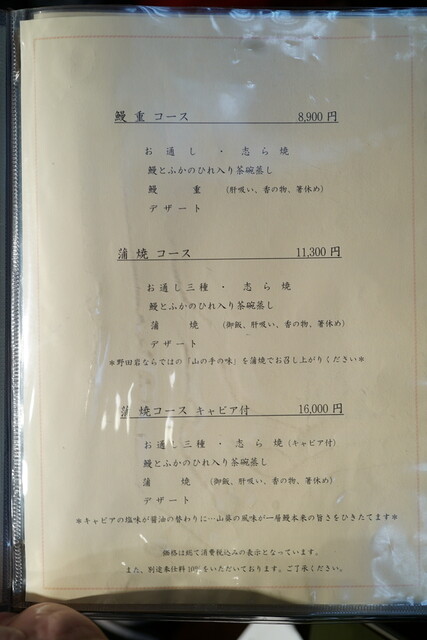 鰻重コース 8,900円
お通し・志ら焼
鰻とふかのひれ入り茶碗蒸し
鰻重 (肝吸い、香の物、箸休め)
デザート
蒲焼コース 11,300円
お通し三種・志ら焼
鰻とふかのひれ入り茶碗蒸し
蒲焼 (御飯、肝吸い、香の物、箸休め)
デザート
＊野田岩ならではの『山の手の味』を蒲焼でお召し上がりください＊
蒲焼コース キャビア付 16,000円
お通し三種・志ら焼(キャビア付)
鰻とふかのひれ入り茶碗蒸し
蒲焼 (御飯、肝吸い、香の物、箸休め)
デザート
＊キャビアの塩味が醤油の替わりに…山葵の風味が一層鰻本来の旨さをひきたてます＊
価格は総て消費税込みの表示となっています。
また、別途奉仕料10%をいただいております。ご了承ください。